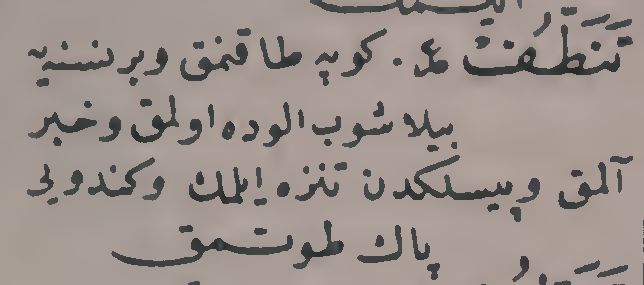 تَنَطُّفْتْ عر. کوپه طاقنمق وبرنسنیه
بیلاشوب الوده اولمق وخبر
آلمق وپیسلکدن تنزه ایلمك وکندویی
پاك طوتمق